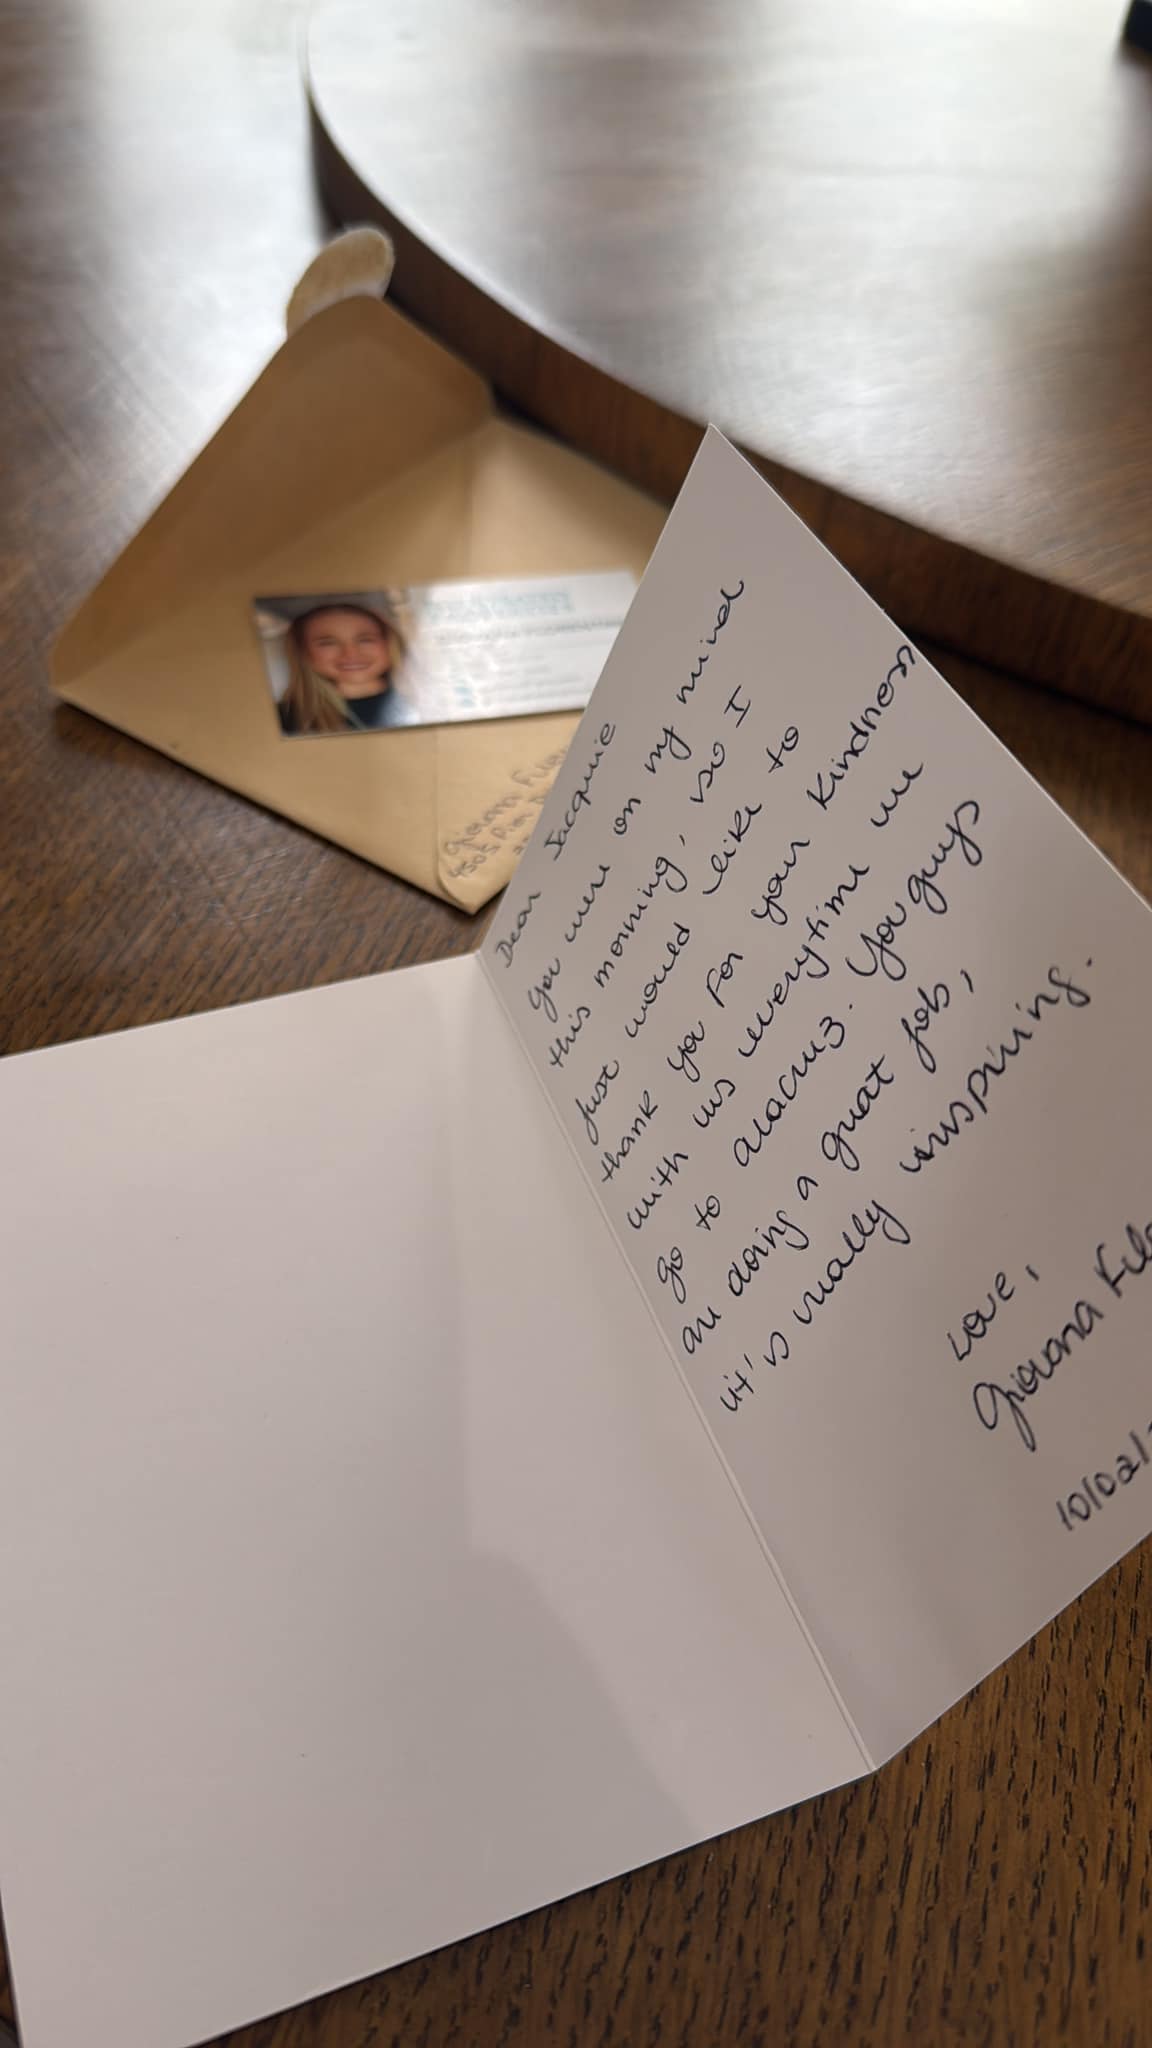 Dear Jacquie
You were on my mind
this morning, so I
just would like to
thank you for your kindness
with us everytime we
go to alacuz. You guys
are doing a great job,
it's really inspiring.
Love,
Giovana
10/02/
Giovana
4505